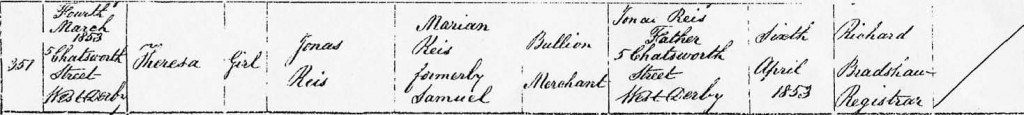 351
Fourth
March
1853
5 Chatsworth
Street
West Derby
Theresa
Girl
Jonas
Reis
Marian
Reis
formerly
Samuel
Bullion
Merchant
Jonas Reis
Father
5 Chatsworth
Street
West Derby
Sixth
April
1853
Richard
Bradshaw
Registrar